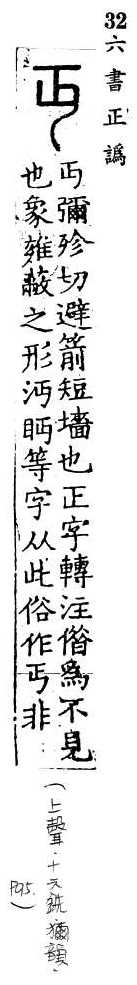 32
六書正譌
丏
丏彌殄切避箭短墻也正字轉注僃為不見
也象雍蔽之形沔眄等字从此俗作丐非
(上聲·十六銑獮韻·
P95.)